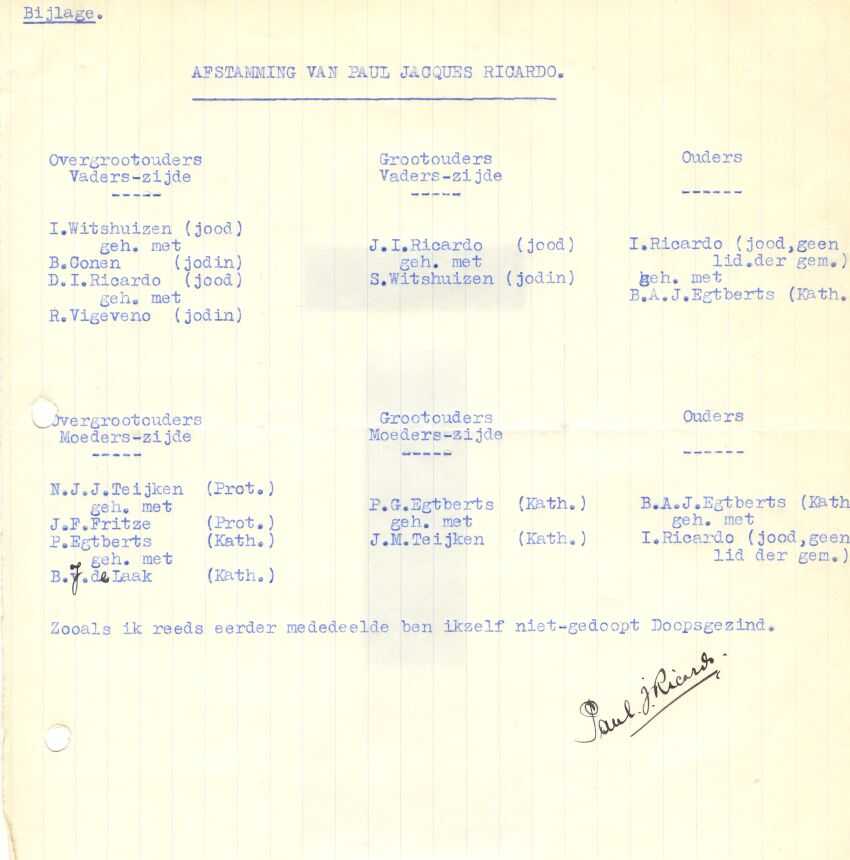 Bijlage.
AFSTAMMING VAN PAUL JACQUES RICARDO.
Overgrootouders
Vaders-zijde
-----
I.Witshuizen (jood)
geh. met
B.Conen (jodin)
D.I.Ricardo (jood)
geh. met
R.Vigeveno (jodin)
Grootouders
Vaders-zijde
-----
J.I.Ricardo (jood)
geh. met
S.Witshuizen (jodin)
Ouders
------
I.Ricardo (jood,geen
lid.der gem.)
geh. met
B.A.J.Egtberts (Kath.
Overgrootouders
Moeders-zijde
-----
N.J.J.Teijken (Prot.)
geh. met
J.F.Fritze (Prot.)
P.Egtberts (Kath.)
geh. met
B.J.de Laak (Kath.)
Grootouders
Moeders-zijde
-----
P.G.Egtberts (Kath.)
geh. met
J.M.Teijken (Kath.)
Ouders
------
B.A.J.Egtberts (Kath
geh. met
I.Ricardo (jood,geen
lid der gem.)
Zooals ik reeds eerder mededeelde ben ikzelf niet-gedoopt Doopsgezind.
Paul.J.Ricardo.